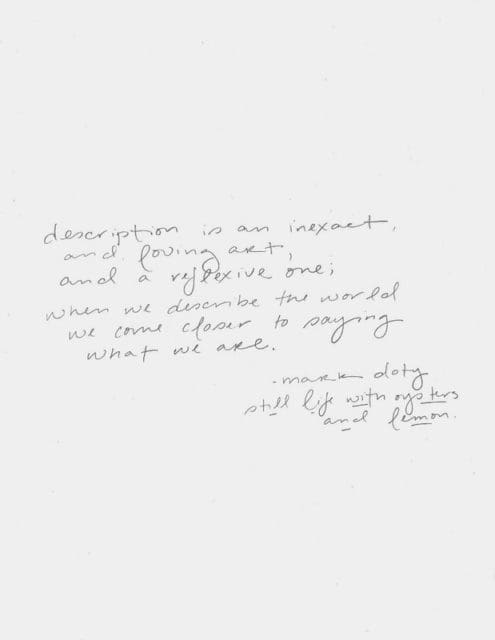 description is an inexact,
and loving art,
and a reflexive one;
when we describe the world
we come closer to saying
what we are.
- mark doty
still life with oysters
and lemon.